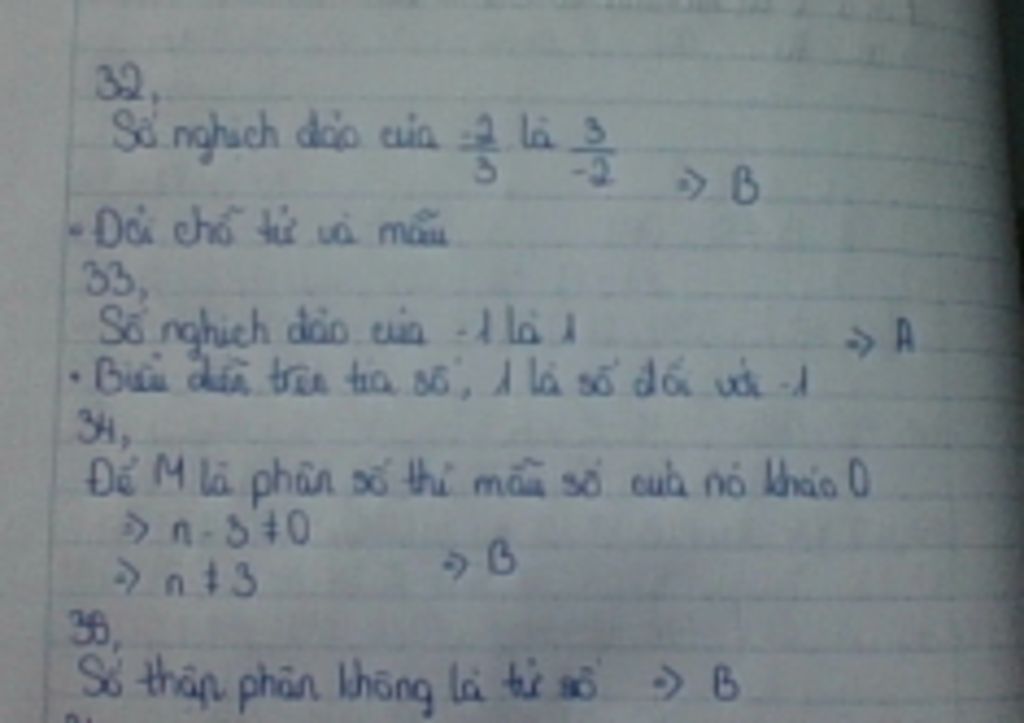 32,
Số nghịch đảo của -2/3 là 3/-2 => B
- Đổi chỗ tử và mẫu
33,
Số nghịch đảo của -1 là 1 => A
• Biểu diễn trên tia số, 1 là số đối với -1
34,
Để M là phân số thì mẫu số của nó khác 0
=> n - 3 ≠ 0
=> n ≠ 3 => B
Số thập phân không là tử số => B